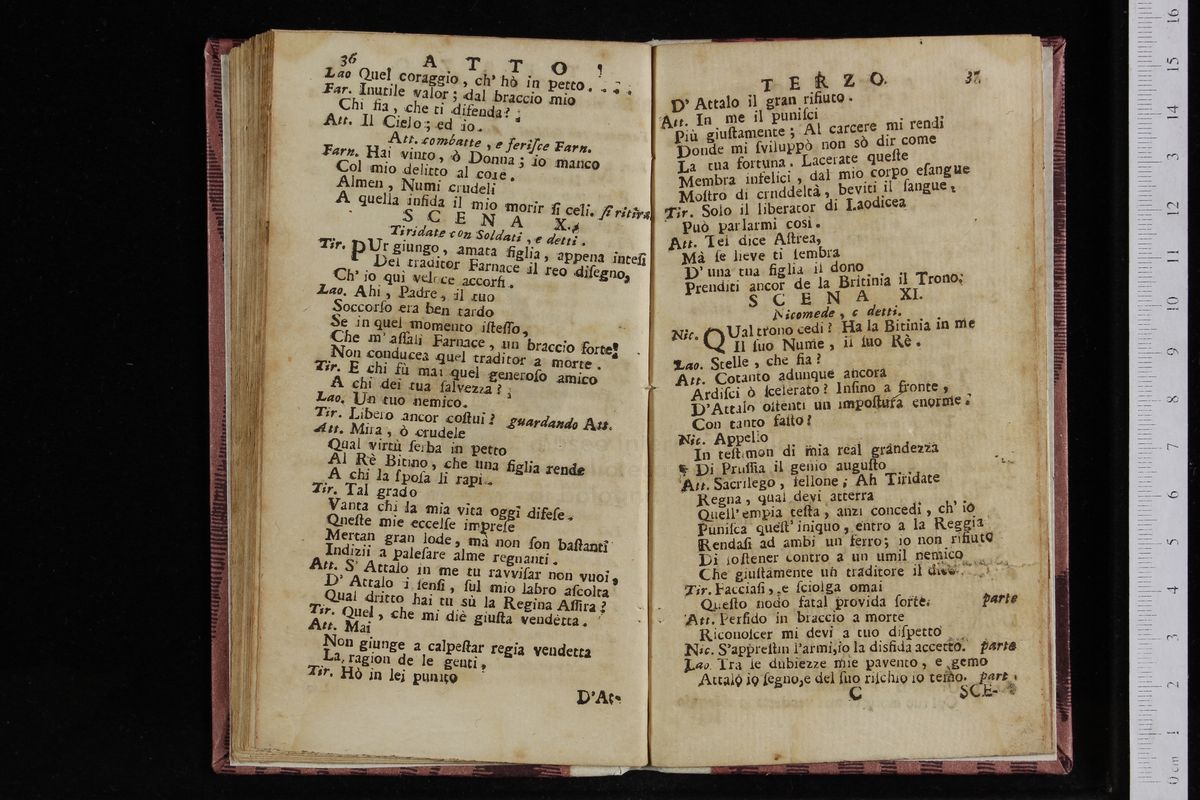 36 ATTO
Lao Quel coraggio, ch' hò in petto. . . .
Far. Inutile valor; dal braccio mio
Chi fia, che ti difenda?
Att. Il Cielo; ed io.
Att. combatte, e feriſce Farn.
Farn. Hai vinto, ò Donna; io manco
Col mio delitto al core.
Almen, Numi crudeli
A quella infida il mio morir ſi celi. ſi ritira
SCENA X.
Tiridate con Soldati, e detti.
Tir. PUr giungo, amata figlia, appena inteſi
Del traditor Farnace il reo diſegno,
Ch' io qui veloce accorſi.
Lao. Ahi, Padre, il tuo
Soccorſo era ben tardo
Se in quel momento iſteſſo,
Che m' aſſalì Farnace, un braccio forte
Non conducea quel traditor a morte.
Tir. E chi fù mai quel generoſo amico
A chi dei tua ſalvezza?
Lao. Un tuo nemico.
Tir. Libero ancor coſtui? guardando Att.
Att. Mira, ò crudele
Qual virtù ſerba in petto
Al Rè Bitino, che una figlia rende
A chi la ſpoſa li rapì.
Tir. Tal grado
Vanta chi la mia vita oggi difeſe.
Queſte mie eccelſe impreſe
Mertan gran lode, mà non ſon baſtanti
Indizii a paleſare alme regnanti.
Att. S' Attalo in me tu ravviſar non vuoi,
D' Attalo i ſenſi, ſul mio labro aſcolta
Qual dritto hai tu sù la Regina Aſſira?
Tir. Quel, che mi diè giuſta vendetta.
Att. Mai
Non giunge a calpeſtar regia vendetta
La ragion de le genti.
Tir. Hò in lei punito
D'At-
TERZO. 37
D' Attalo il gran rifiuto.
Att. In me il puniſci
Più giuſtamente; Al carcere mi rendi
Donde mi ſviluppò non sò dir come
La tua fortuna. Lacerate queſte
Membra infelici, dal mio corpo eſangue
Moſtro di crnddeltà, beviti il ſangue.
Tir. Solo il liberator di Laodicea
Può parlarmi così.
Att. Tel dice Aſtrea,
Mà ſe lieve ti ſembra
D' una tua figlia il dono
Prenditi ancor de la Britinia il Trono.
SCENA XI.
Nicomede, e detti.
Nic. QUal trono cedi? Ha la Bitinia in me
Il ſuo Nume, il ſuo Rè.
Lao. Stelle, che fia?
Att. Cotanto adunque ancora
Ardiſci ò ſcelerato? Inſino a fronte,
D'Attalo oſtenti un impoſtura enorme
Con tanto faſto?
Nic. Appello
In teſtimon di mia real grandezza
Di Pruſſia il genio auguſto
Att. Sacrilego, fellone; Ah Tiridate
Regna, qual devi atterra
Quell' empia teſta, anzi concedi, ch' io
Puniſca queſt' iniquo, entro a la Reggia
Rendaſi ad ambi un ferro; io non rifiuto
Di ſoſtener contro a un umil nemico
Che giuſtamente un traditore il
Tir. Facciaſi, e ſciolga omai
Queſto nodo fatal provida ſorte. parte
Att. Perfido in braccio a morte
Riconoſcer mi devi a tuo diſpetto
Nic. S'appreſtin l'armi, io la disfida accetto. parte
Lao. Tra le dubiezze mie pavento, e gemo
Attalo io ſegno, e del ſuo riſchio io temo. part.
C SCE-